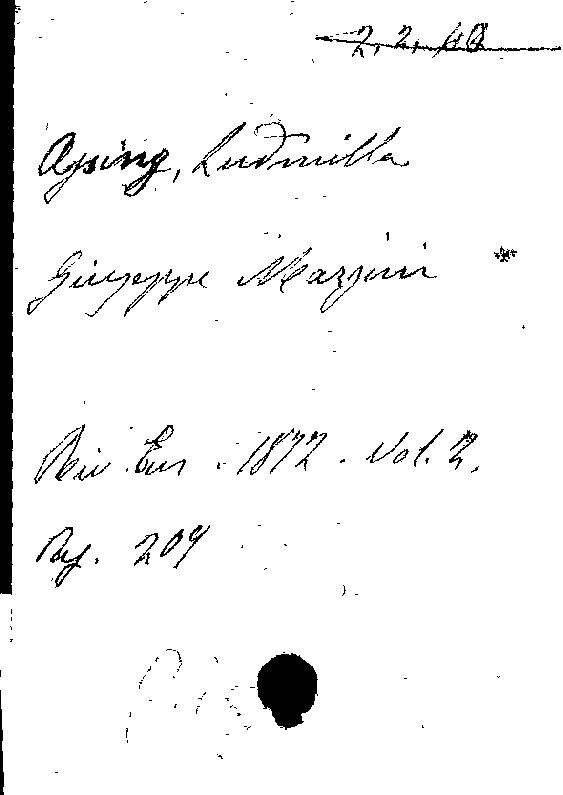 2. 2. 40
Assing, Ludmilla
Giuseppe Mazzini *
Riv. Eur. 1872. Vol. 2.
Pag. 209